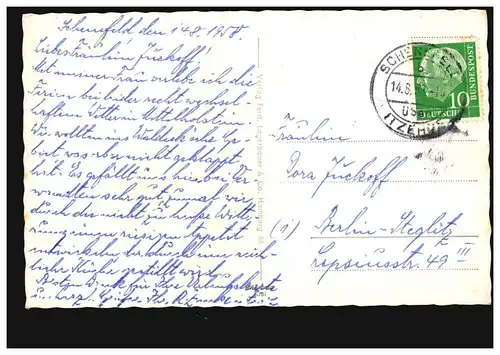 Schenefeld den 14.8.1958.
Liebes Fräulein Juckoff!
Mit unserer Frau erlebe ich die
Ferien bei leider recht wechsel-
haftem Wetter in Mittelholstein.
Wir wollten ins Waldeck'sche Ge-
biet, was aber nicht geklappt
hat. Es gefällt uns hier bei Ver-
wandten sehr gut, zumal wir
durch die nicht zu heiße Witte-
rung einen riesigen Appetit
entwickeln, der durch eine reich-
liche Küche gestillt wird.
Vielen Dank für Ihre
u. herzl. Grüße Ihr
Verlag Ferd. Lagerbauer & Co., Hamburg
SCHENEFELD
14.8.
ITZEHOE
DEUTSCHE
BUNDESPOST
10
Fräulein
Dora Juckoff
(1) Berlin-Steglitz
Lepsiusstr. 49 III